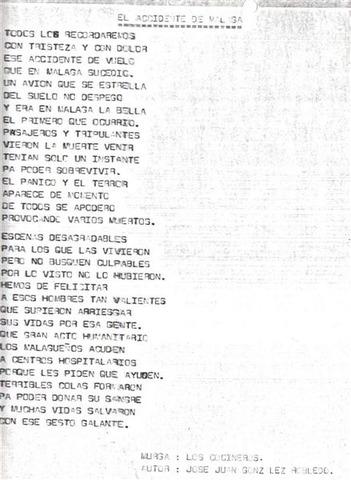 EL ACCIDENTE DE MALAGA
TODOS LOS RECORDAREMOS
CON TRISTEZA Y CON DOLOR
ESE ACCIDENTE DE VUELO
QUE EN MALAGA SUCEDIO.
UN AVION QUE SE ESTRELLA
DEL SUELO NO DESPEGO
Y ERA EN MALAGA LA BELLA
EL PRIMERO QUE OCURRIO.
PASAJEROS Y TRIPULANTES
VIERON LA MUERTE VENIR
TENIAN SOLO UN INSTANTE
PA PODER SOBREVIVIR.
EL PANICO Y EL TERROR
APARECE DE MOMENTO
DE TODOS SE APODERO
PROVOCANDO VARIOS MUERTOS.
ESCENAS DESAGRADABLES
PARA LOS QUE LAS VIVIERON
PERO NO BUSQUEN CULPABLES
POR LO VISTO NO LO HUBIERON.
HEMOS DE FELICITAR
A ESOS HOMBRES TAN VALIENTES
QUE SUPIERON ARRIESGAR
SUS VIDAS POR ESA GENTE.
QUE GRAN ACTO HUMANITARIO
LOS MALAGUEÑOS ACUDEN
A CENTROS HOSPITALARIOS
PORQUE LES PIDEN QUE AYUDEN.
TERRIBLES COLAS FORMARON
PA PODER DONAR SU SANGRE
Y MUCHAS VIDAS SALVARON
CON ESE GESTO GALANTE.
MURGA : LOS COCINEROS.
AUTOR : JOSE JUAN GONZ LEZ ROBLEDO.